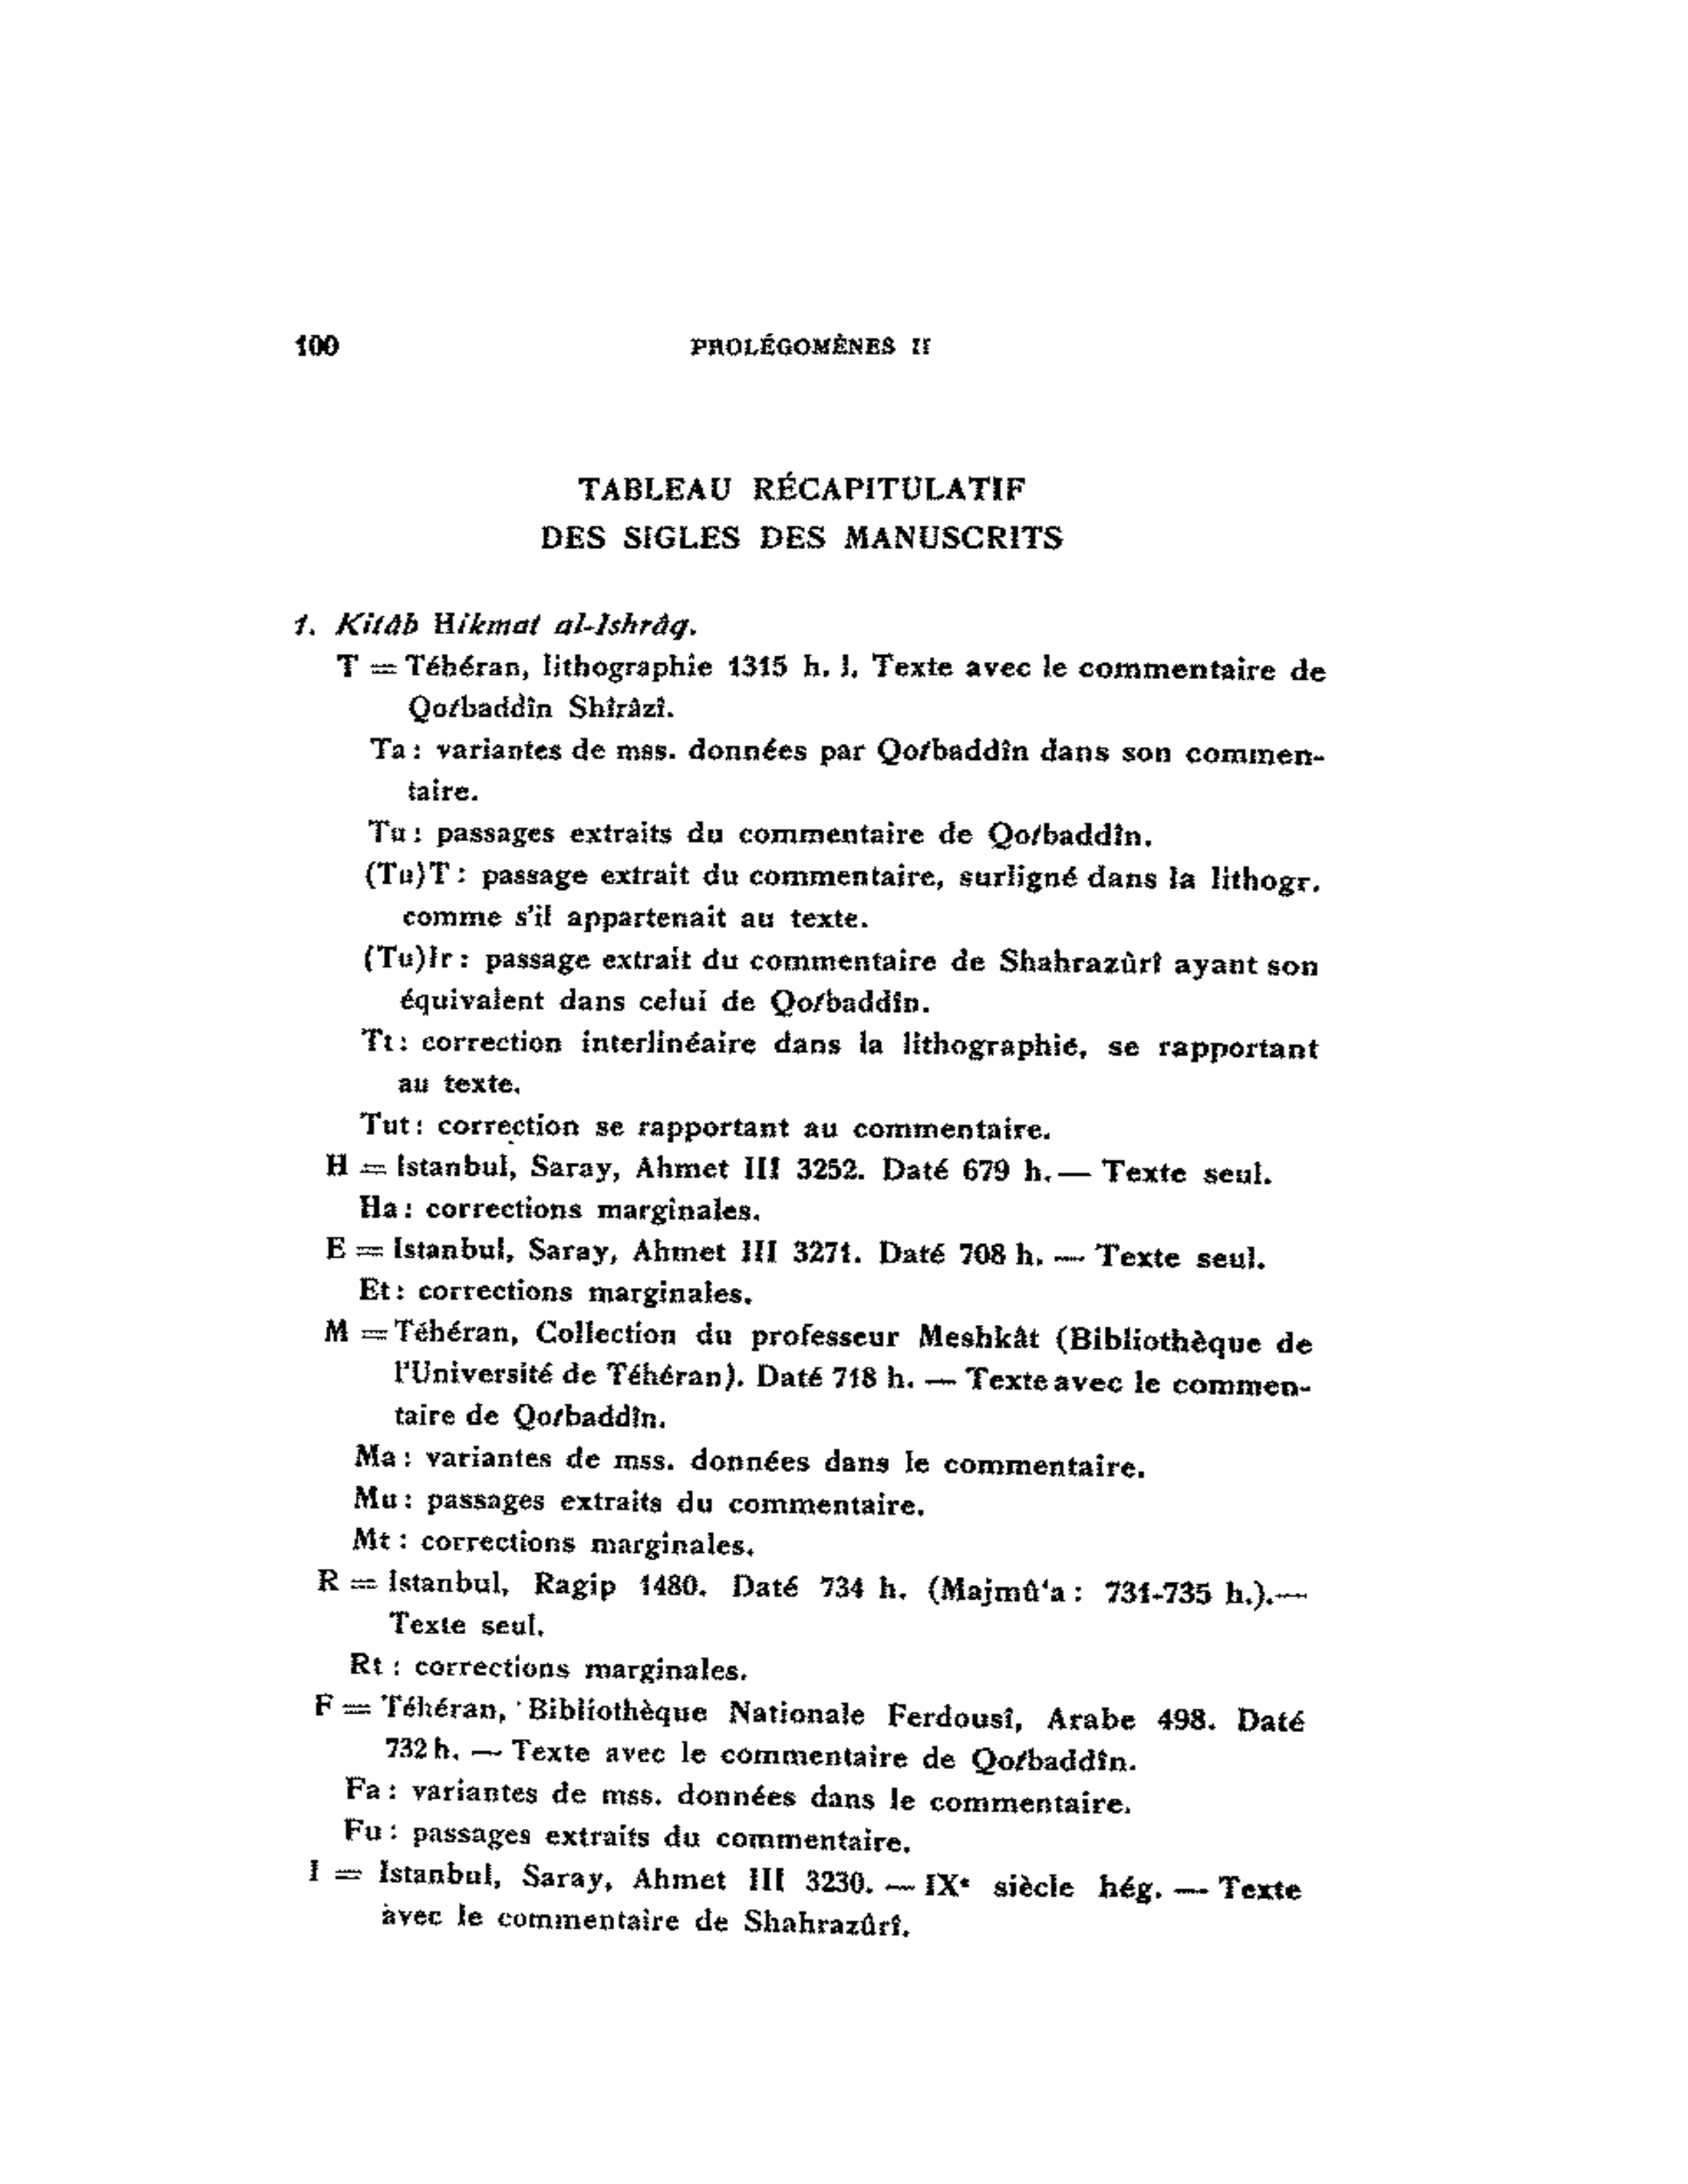 100 PROLÉGOMÈNES II
TABLEAU RÉCAPITULATIF
DES SIGLES DES MANUSCRITS
1. Kitâb Hikmat al-Ishrâq.
T = Téhéran, lithographie 1315 h. l. Texte avec le commentaire de
Qotbaddîn Shîrâzî.
Ta : variantes de mss. données par Qotbaddîn dans son commen-
taire.
Tu : passages extraits du commentaire de Qotbaddîn.
(Tu)T : passage extrait du commentaire, surligné dans la lithogr.
comme s'il appartenait au texte.
(Tu)Ir : passage extrait du commentaire de Shahrazûrî ayant son
équivalent dans celui de Qotbaddîn.
Tt : correction interlinéaire dans la lithographie, se rapportant
au texte.
Tut : correction se rapportant au commentaire.
H = Istanbul, Saray, Ahmet III 3252. Daté 679 h. — Texte seul.
Ha : corrections marginales.
E = Istanbul, Saray, Ahmet III 3271. Daté 708 h. — Texte seul.
Et : corrections marginales.
M = Téhéran, Collection du professeur Meshkât (Bibliothèque de
l'Université de Téhéran). Daté 718 h. — Texte avec le commen-
taire de Qotbaddîn.
Ma : variantes de mss. données dans le commentaire.
Mu : passages extraits du commentaire.
Mt : corrections marginales.
R = Istanbul, Ragip 1480. Daté 734 h. (Majmû‘a : 731-735 h.).—
Texte seul.
Rt : corrections marginales.
F = Téhéran, Bibliothèque Nationale Ferdousî, Arabe 498. Daté
732 h. — Texte avec le commentaire de Qotbaddîn.
Fa : variantes de mss. données dans le commentaire.
Fu : passages extraits du commentaire.
I = Istanbul, Saray, Ahmet III 3230. — IXe siècle hég. — Texte
avec le commentaire de Shahrazûrî.